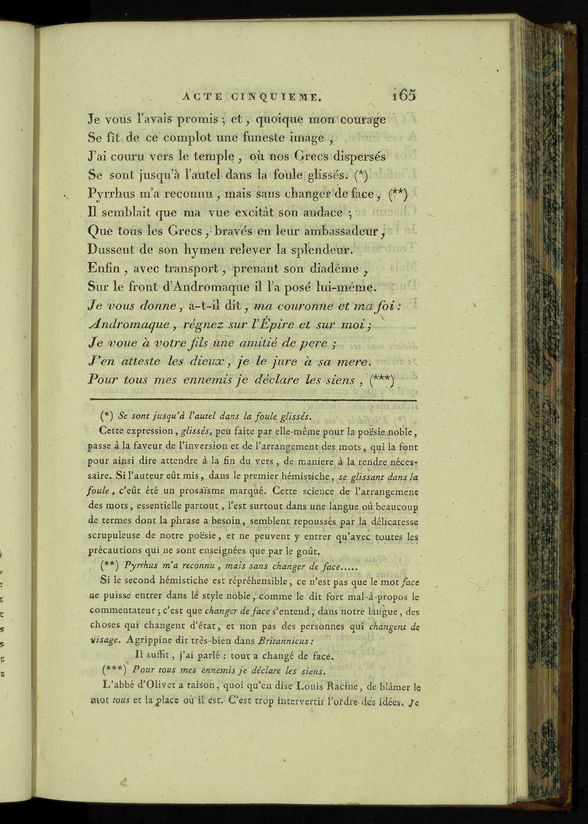 ACTE CINQUIEME. 165
Je vous l'avais promis ; et , quoique mon courage
Se fît de ce complot une funeste image ,
J'ai couru vers le temple , où nos Grecs dispersés
Se sont jusqu'à l'autel dans la foule glissés. (*)
Pyrrhus m'a reconnu , mais sans changer de face , (**)
Il semblait que ma vue excitât son audace ;
Que tous les Grecs , bravés en leur ambassadeur ,
Dussent de son hymen relever la splendeur.
Enfin , avec transport , prenant son diadême ,
Sur le front d'Andromaque il l'a posé lui-même.
Je vous donne , a-t-il dit , ma couronne et ma foi :
Andromaque , régnez sur l'Épire et sur moi ;
Je voue à votre fils une amitié de pere ;
J'en atteste les dieux , je le jure à sa mere.
Pour tous mes ennemis je déclare les siens , (***)
(*) Se sont jusqu'à l'autel dans la foule glissés.
Cette expression , glissés, peu faite par elle-même pour la poësie noble ,
passe à la faveur de l'inversion et de l'arrangement des mots , qui la font
pour ainsi dire attendre à la fin du vers , de maniere à la rendre néces-
saire. Si l'auteur eût mis , dans le premier hémistiche , se glissant dans la
foule , c'eût été un prosaïsme marqué. Cette science de l'arrangement
des mots , essentielle partout , l'est surtout dans une langue où beaucoup
de termes dont la phrase a besoin , semblent repoussés par la délicatesse
scrupuleuse de notre poësie , et ne peuvent y entrer qu'avec toutes les
précautions qui ne sont enseignées que par le goût.
(**) Pyrrhus m'a reconnu , mais sans changer de face.....
Si le second hémistiche est répréhensible , ce n'est pas que le mot face
ne puisse entrer dans le style noble , comme le dit fort mal-à-propos le
commentateur ; c'est que changer de face s'entend , dans notre langue , des
choses qui changent d'état , et non pas des personnes qui changent de
visage. Agrippine dit très-bien dans Britannicus :
Il suffit , j'ai parlé : tout a changé de face.
(***) Pour tous mes ennemis je déclare les siens.
L'abbé d'Olivet a raison , quoi qu'en dise Louis Racine , de blâmer le
mot tous et la place où il est. C'est trop intervertir l'ordre des idées. Je